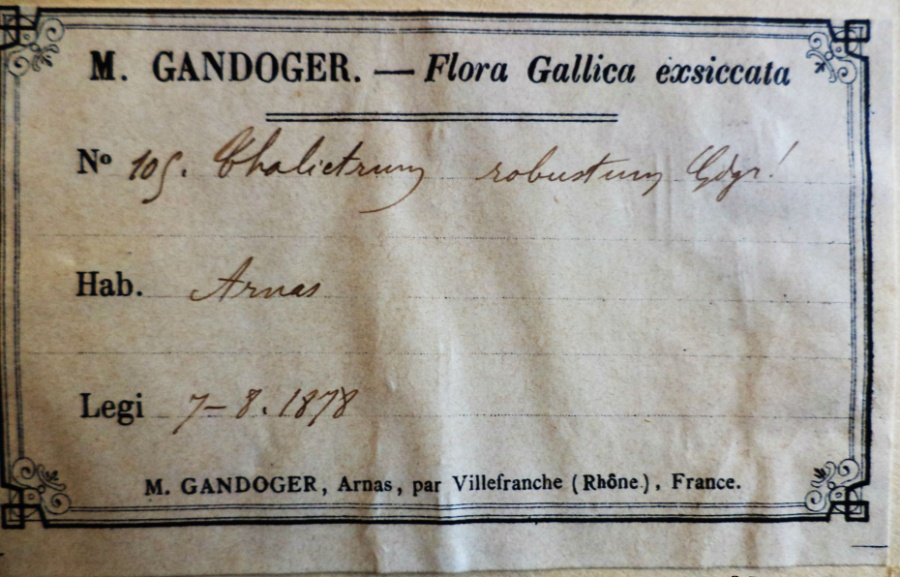 M. GANDOGER. — Flora Gallica exsiccata
Nº 105. Thalictrum robustum Gdgr!
Hab. Arnas
Legi 7-8. 1878
M. GANDOGER, Arnas, par Villefranche (Rhône.), France.